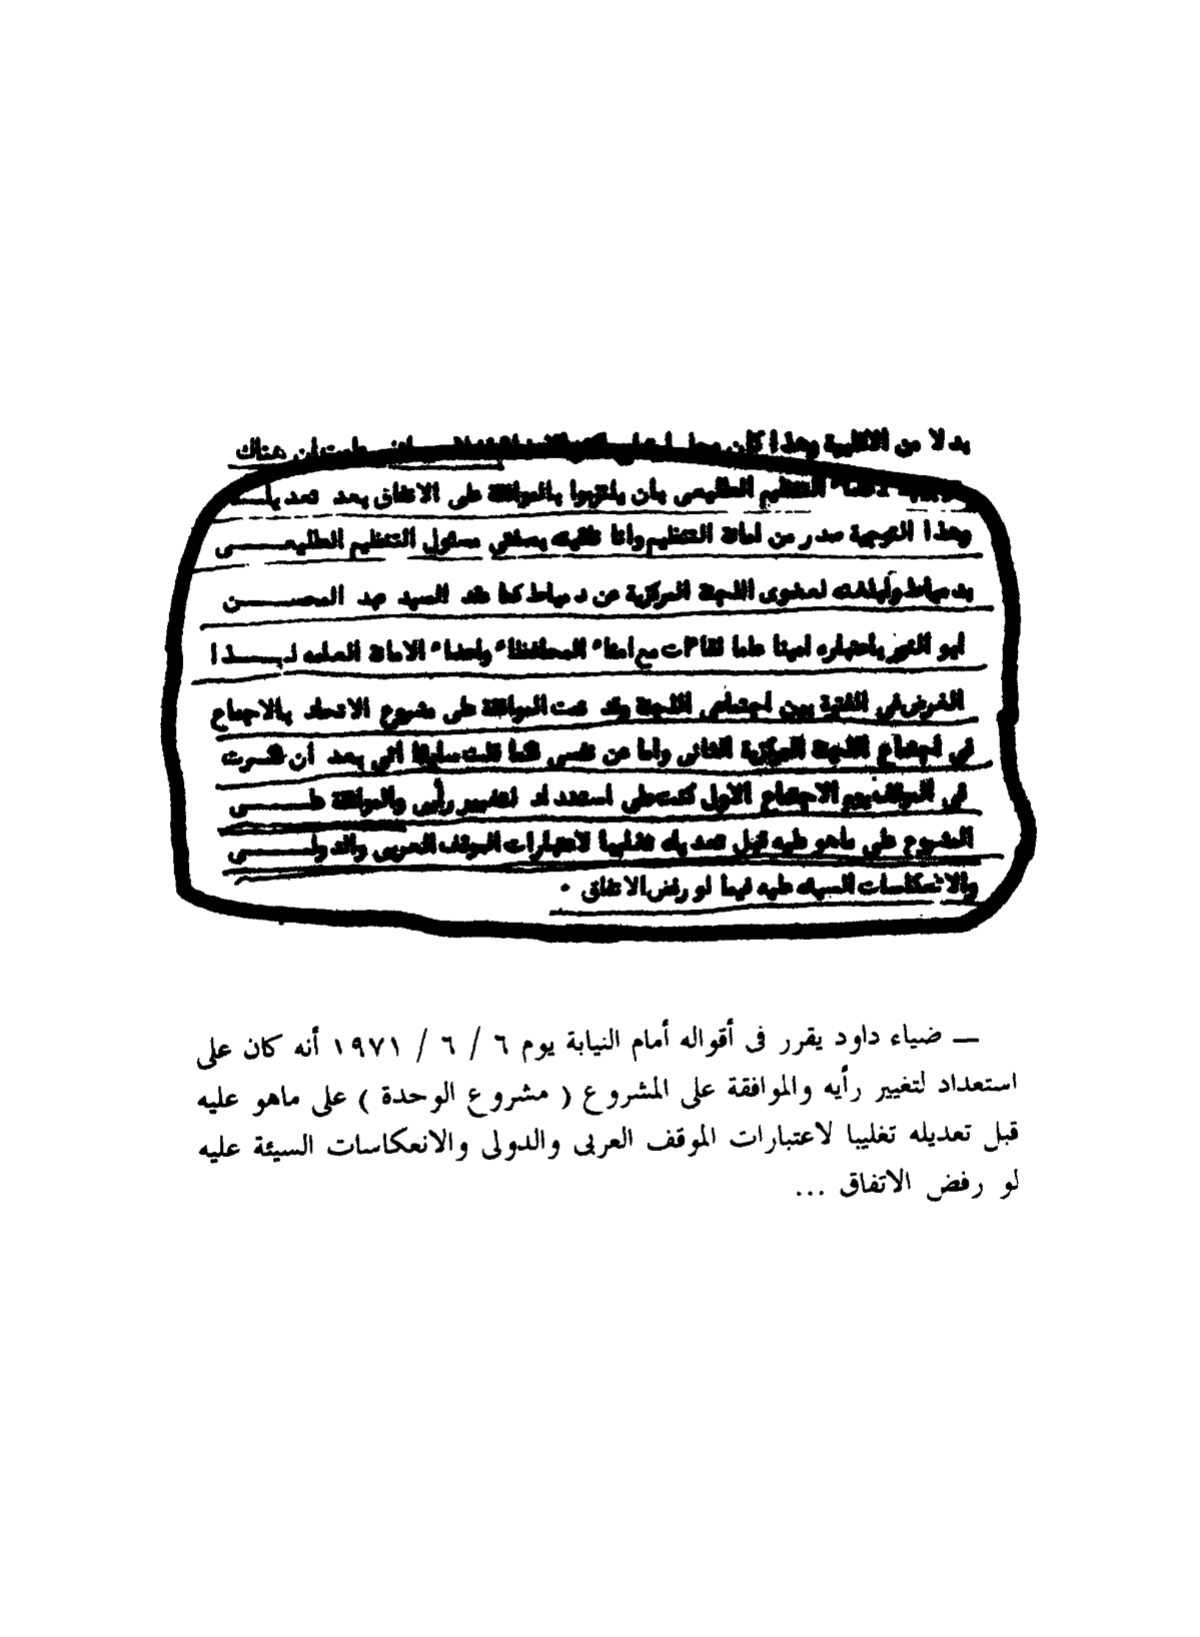 بدلا من الاقلية وهذا كان هناك
التنظيم الطليعى بأن يلتزموا بالموافقة على الاتفاق بعد تعديله
وهذا التوجيه صدر من امانة التنظيم وانا تلقيته بصفتى مسئول التنظيم الطليعـــى
بدمياط وابلغته لعضوى اللجنة المركزية عن دمياط كما عقد السيد عبد المحســـن
ابو النور باعتباره امينا عاما لقاءات مع امناء المحافظات واعضاء الامانة العامه لهـــذا
الغرض فى الفترة بين اجتماعى اللجنة وقد تمت الموافقة على مشروع الاتحاد بالاجماع
فى اجتماع اللجنة المركزية الثانى واما عن نفسى فكما قلت سابقا اننى بعد أن فكـرت
فى الموقف يوم الاجتماع الاول كنت على استعداد لتغيير رأيى والموافقة علـــى
المشروع على ماهو عليه قبل تعديله تغليبا لاعتبارات الموقف العربى والدولـــى
والانعكاسات السيئه عليه فيما لو رفض الاتفاق ٠
— ضياء داود يقرر فى أقواله أمام النيابة يوم ٦ / ٦ / ١٩٧١ أنه كان على
استعداد لتغيير رأيه والموافقة على المشروع ( مشروع الوحدة ) على ماهو عليه
قبل تعديله تغليبا لاعتبارات الموقف العربى والدولى والانعكاسات السيئة عليه
لو رفض الاتفاق ...